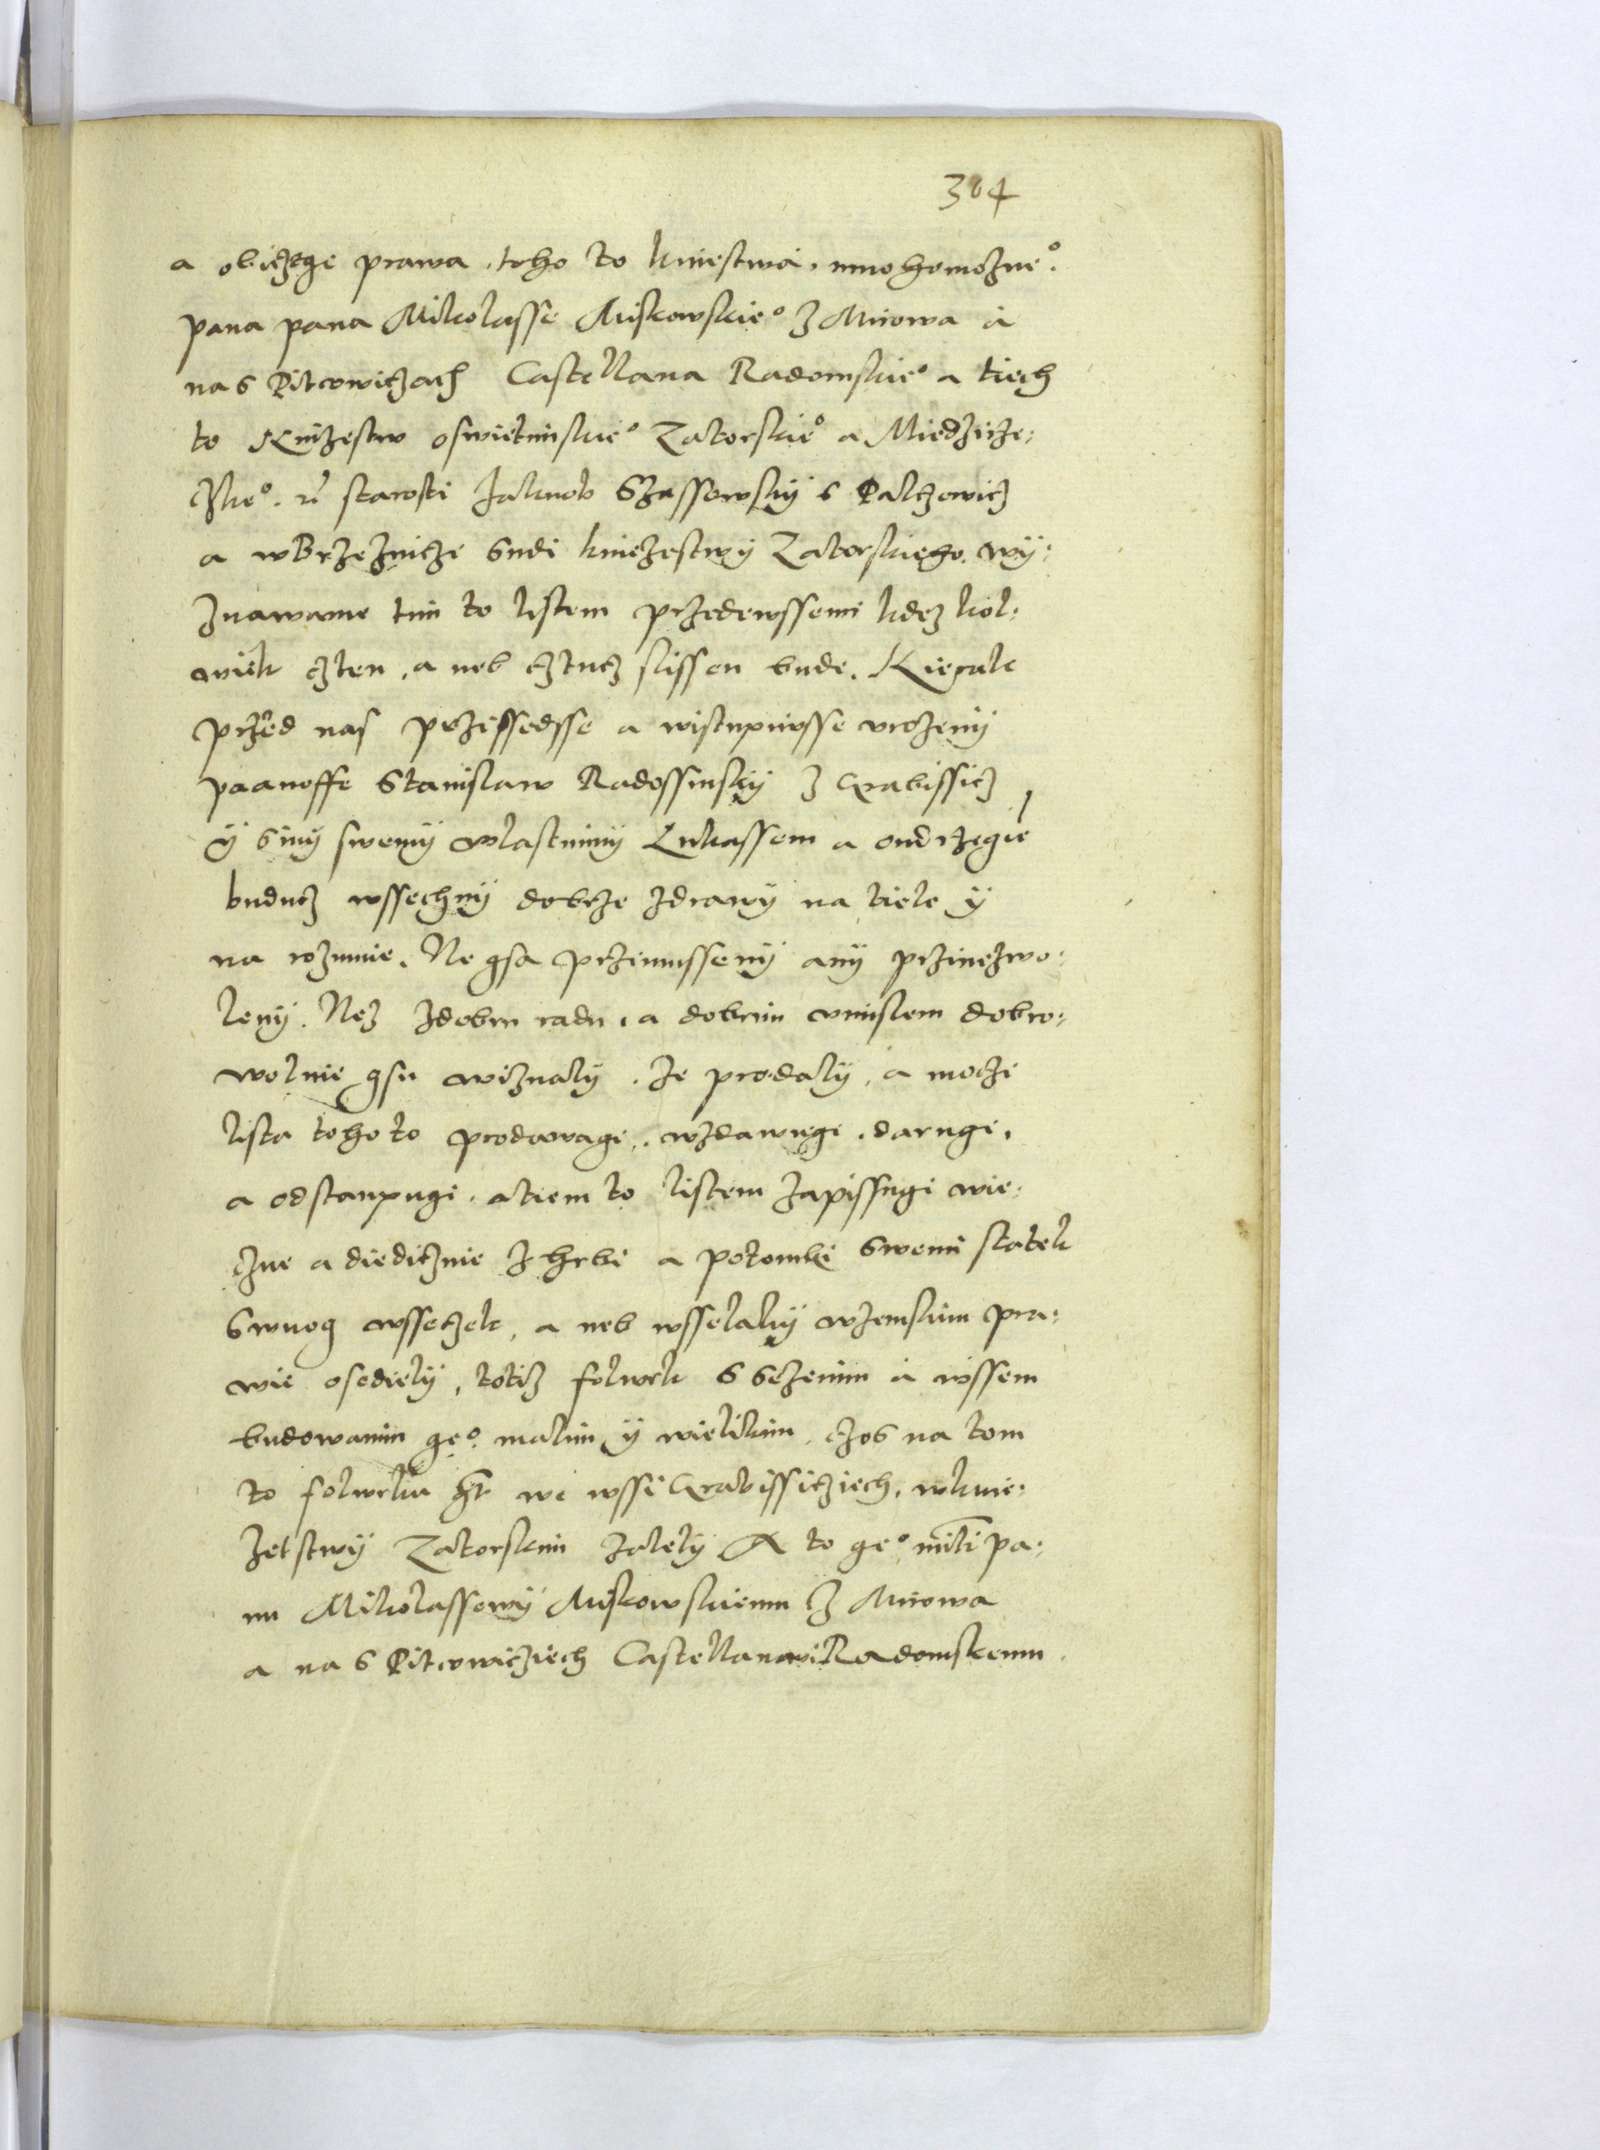 304
a obiczege prawa toho to kniestwa. mnohomożne°.
pana pana Mikolasse Miskowskie° z Mirowa a
na S Pitcowiczach Castellana Radomskie° a tiech
to Knizestw oswietimskie° Zatorskie° a Miedzicze:
czke°. rć starosti Jakuob Szassowsky s Palczowicz
a wBrzeznicze Sudi kniezestwy Zatorskiego. wy:
znawame tim to listem przedewssemi kdez kol:
wiek czten, a neb cztucz slissen bude. Kterak
przed nas przissedsse a wistupiwsse vrozeny
paanosse Stanislaw Radossinsky z Grabissicz
y Siny swemy wlastnimy Lukassem a ondrzegie
buducz wssechny dobrze zdrawy na tiele y
na rozumie. Ne gsa przimusseny any przinezwo:
leny. Nez zdobru radu, a dobrim vmislem dobro:
wolnie gsu wiznaly. Ze prodaly, a moczi
lista tohoto prodawagi. wzdawugi. darugi.
a odstaupugi. a tiem to listem zapissugi wie:
czne a diedicznie z hrbi a potomki Swemi statek
Swuog wsseczek, a neb wsselaky wzemskim pra:
wie osediely, totiz folwrk S Sezenim a wssem
budowanim ge°. malim y wielikim. czos na tom
to folwrku we wssi Grabissicziech. wknie:
zetstwy Zatorskim zalely A to ge° mīlti pa:
nu Mikolassowy Miskowskiemu z Mirowa
a na S Pitcowicziech Castellanowi Radomskemu.